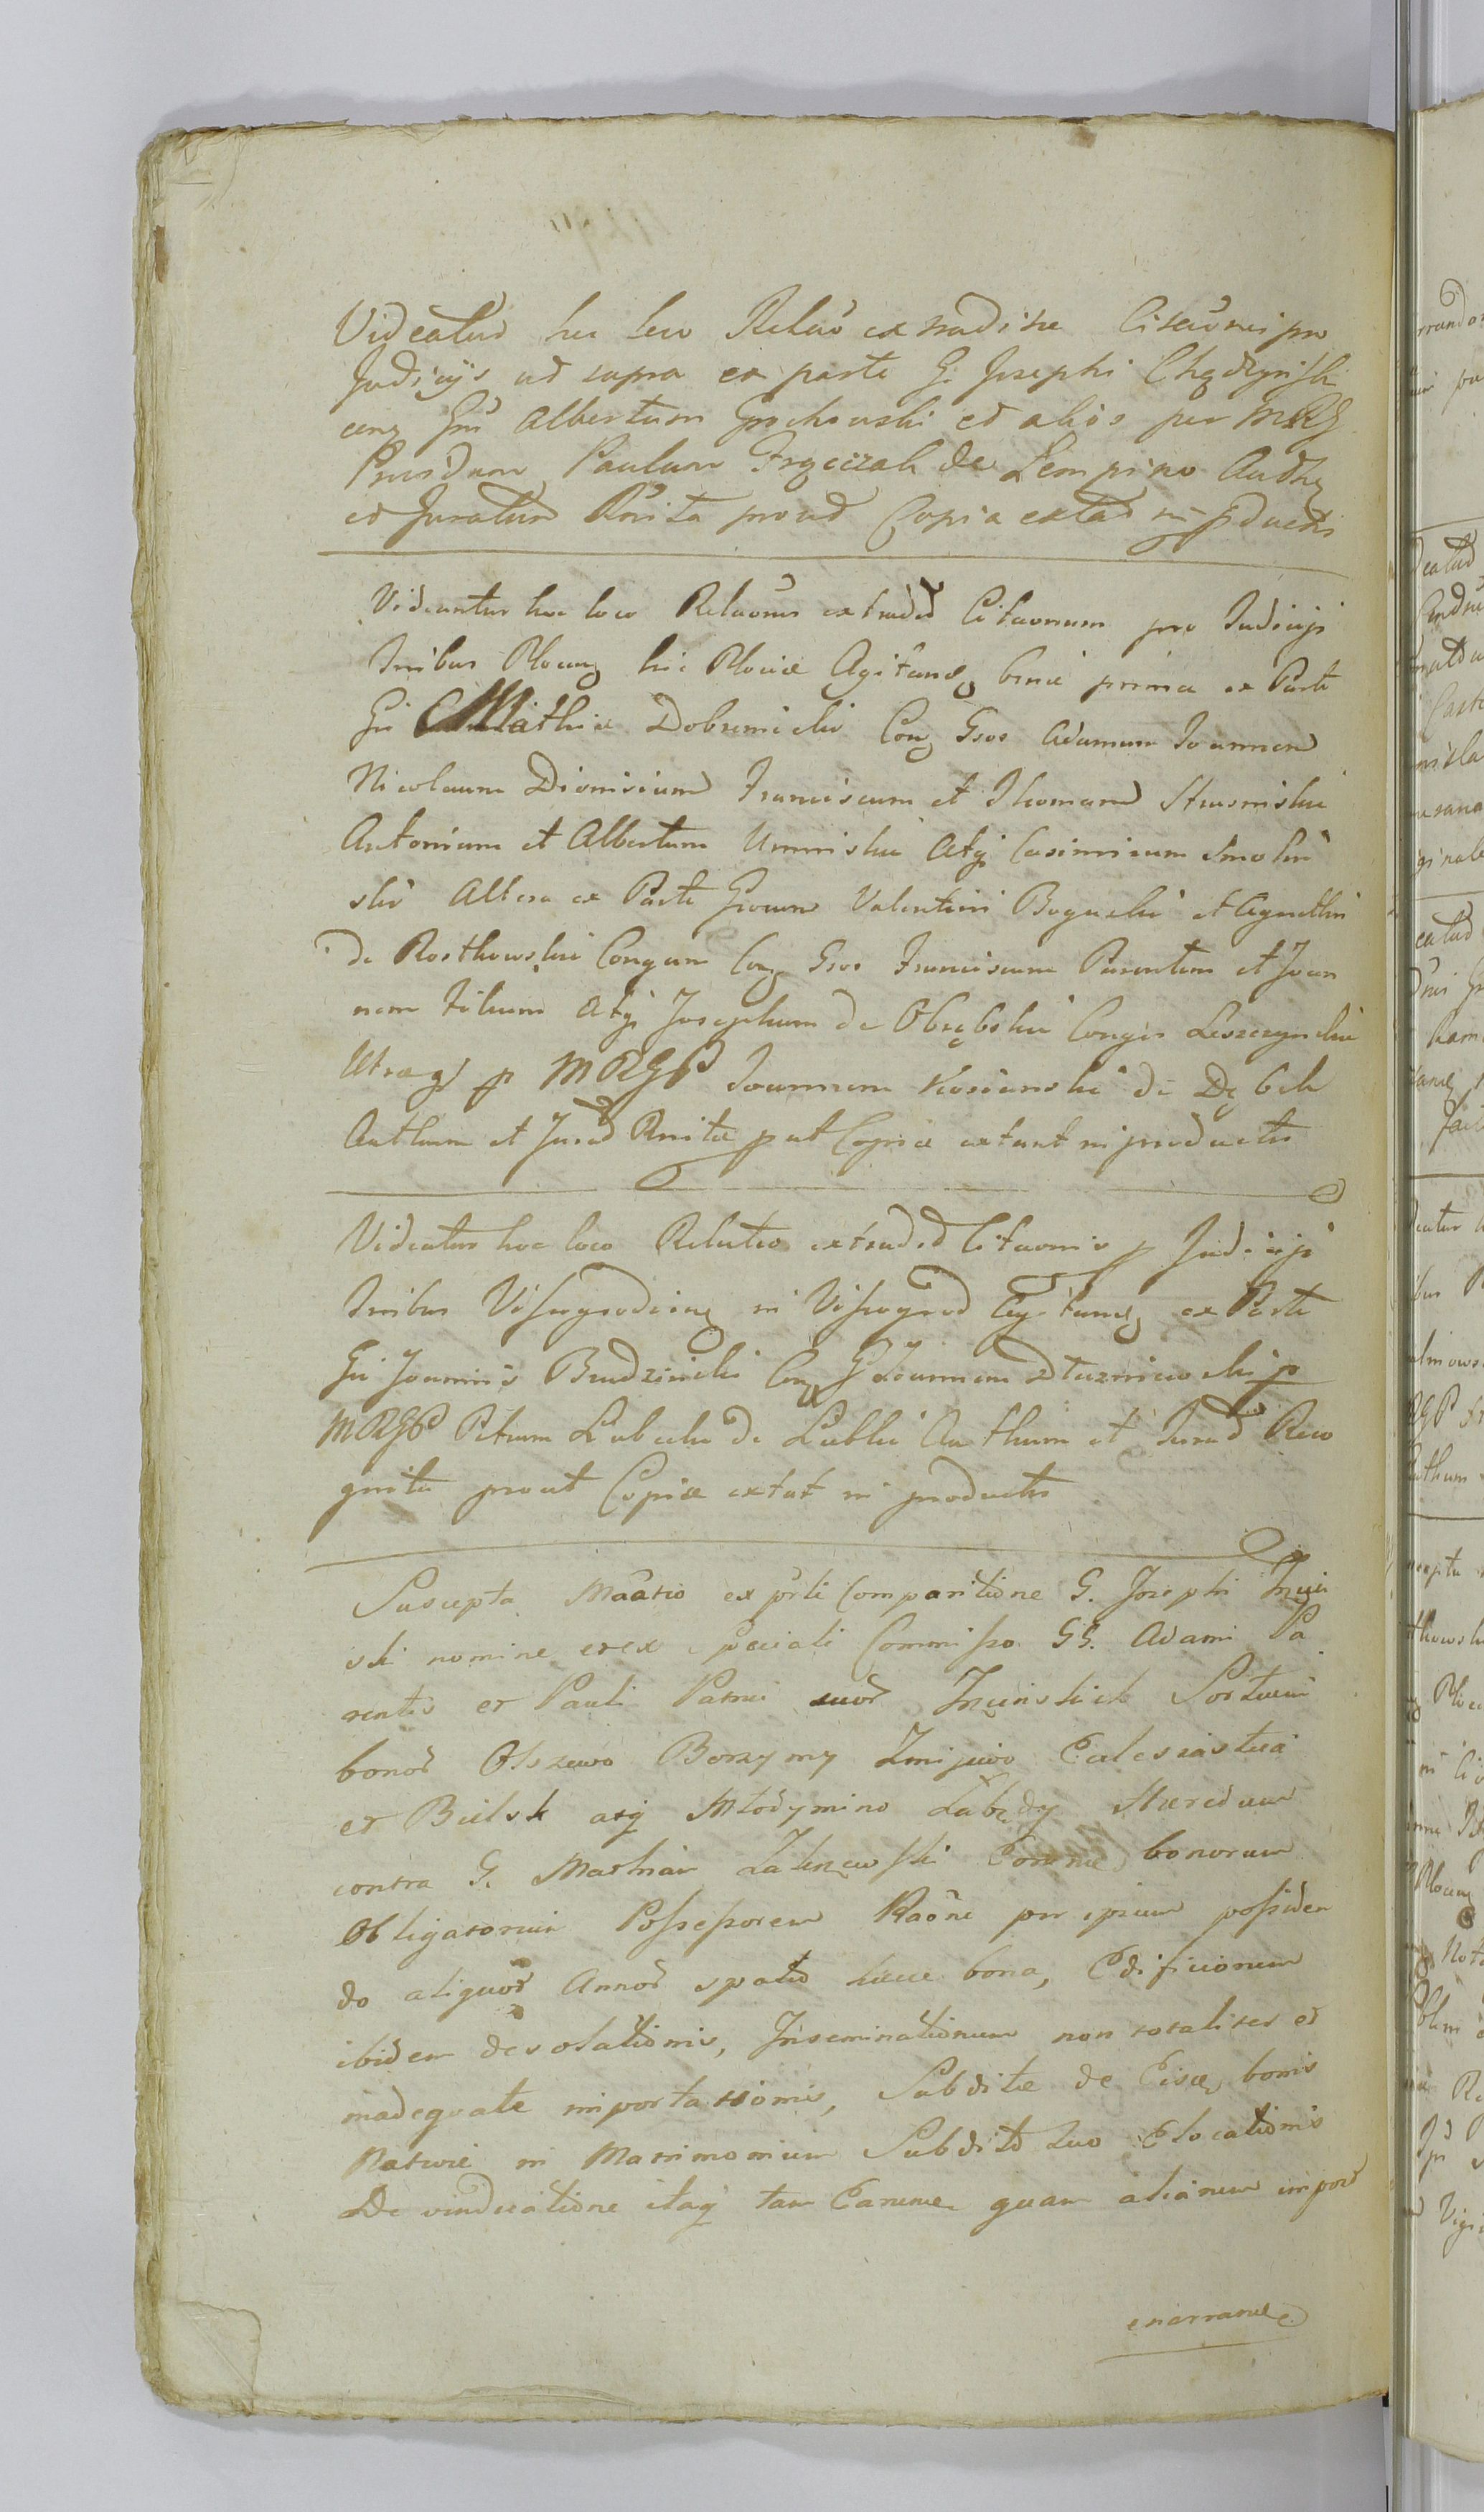 Videatur hic loco Relaõ extraditae Citaõnis pro
Judicijs ut supra ex parte G. Josephi Chądzyński
conz Gm Albertum Grochowski et alios per MRG
Providum Paulum Frączzak de Lempino Authz
et Juratum Rnita prout Copia extat in pductis
Videantur hoc loco Relaõnes extradit Citaonum pro Judicijs
Trribus Plocenz hic Plociae Agitand binae prima ex Parte
Gi Mathiae Dobrznicki Conz Gsos Adamum Joannem
Nicolaum Dionisium Franciscum et Thomam
Antonium et Albertum Uminskie Atqz Casimirum Smolin
ski Altera ex Parte Grorum Valentini Boguski et Agnethis
de Rostkowskie Congum Conz Gsos Franciscum Parentem et Joan
nem Filium Atqz Josephum de Obrębskie Congis Leszczynskie
Utraqz p MRGP Joannem Kosianski de Dębsk
Authum et Jurad Rnitae put Copiae extant in productis
Videatur hoc loco Relatio extradit Citaonis p Judicijs
Trribus Vissogrodienz in Vissogrod Agitand ex Parte
Gi Joannis Brudzinski Conz G Joannem Dłuzniewski p
MRGP Petrum Lubecki de Lubki Authum et Jurad Reco
gnita prout Copiae extat in productis
Suscepta Maãtio ex prti Comparitione G. Josephi
ski nomine et ex speciali Commisso GG. Adami Pa
rentis et Pauli Patrui suor Sortium
bonor Olszewo Borzymy Zmijewo Ecclesiastica
et Bielsk atqz Młodymino Łabędy Haeredum
contra G. Mathiam Eorum bonorum
Obligatorium Possessorem Raõne per ipsum possiden
do aliquor Annor spatio haec bona, Edificiorum
ibidem desolationis, Inseminationum non totaliter et
inadequate importationis, Subditae de Eisd bonis
Naturae in Matrimonium Subdito suo Elocationis
De vindicatione itaqz tam Earum quam aliarum impor
enarrand